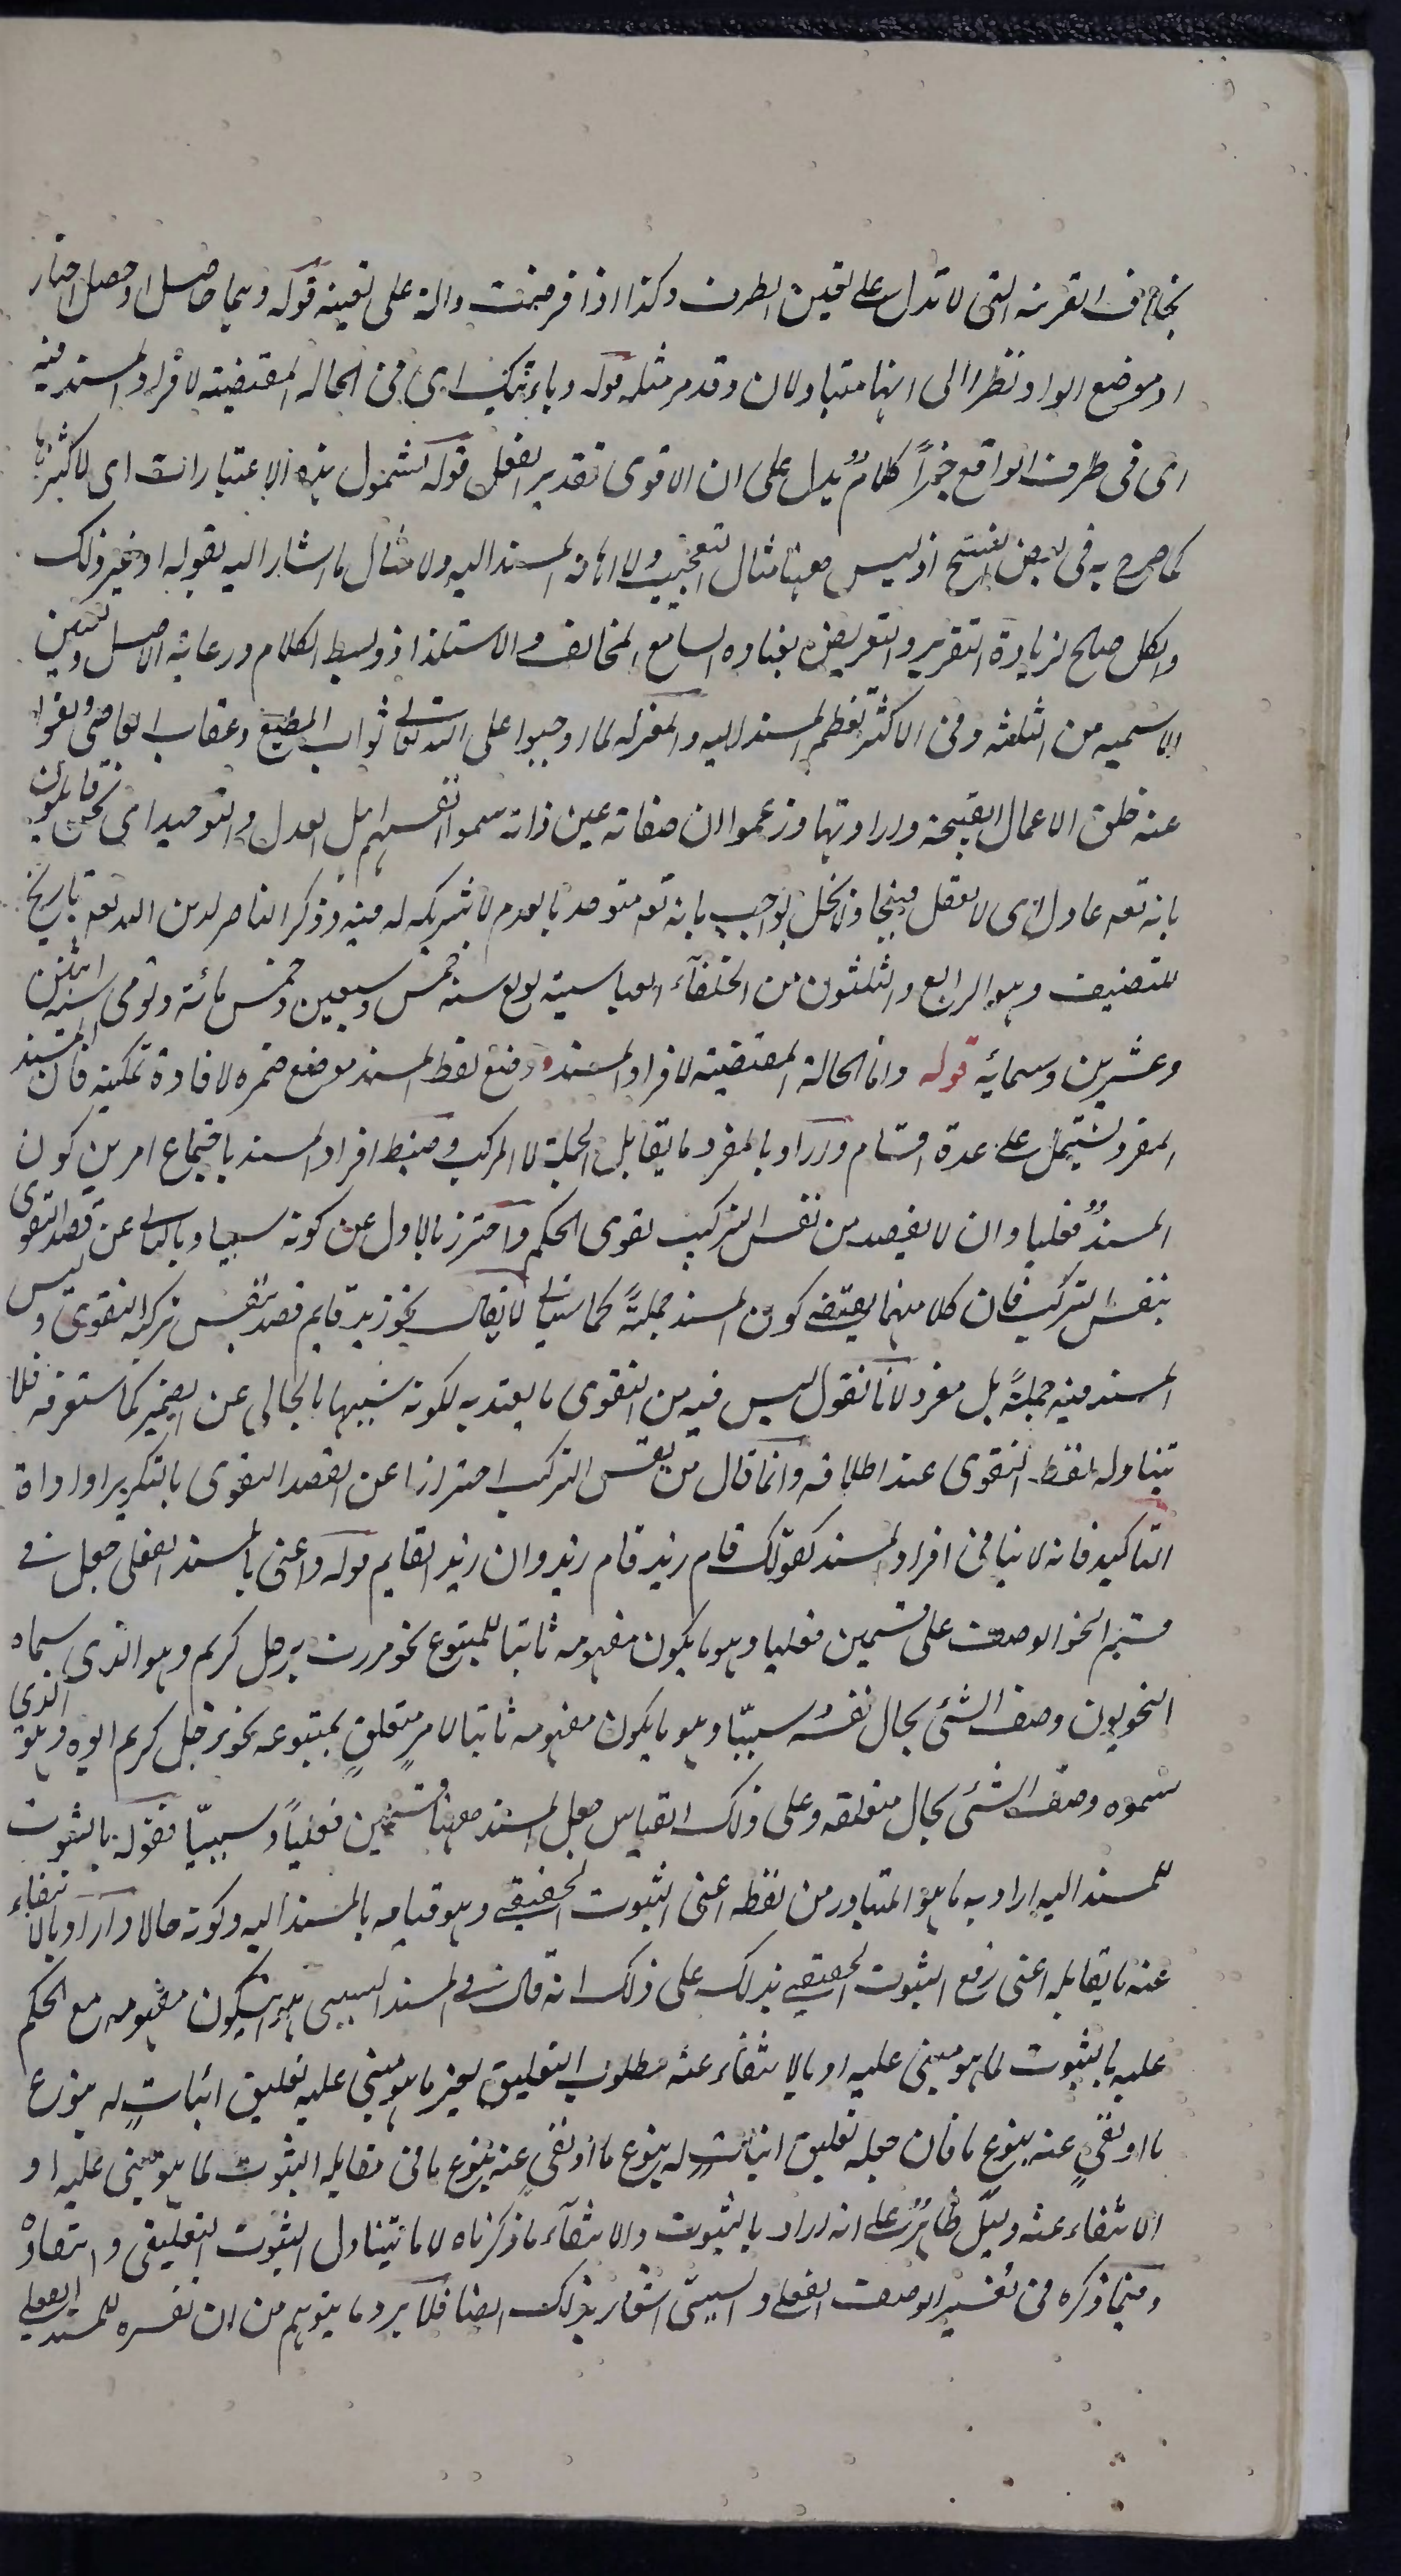 بخلاف القرينة التى لا تدل على تعين الطرف وكذا اذا فرضت دالة على تعينه قوله وهما حاصل او حصل اختار
او موضع الواو نظرا الى انهما متبادلان وقد مر مثله قوله وباترتك اى فى الحالة المقتضية لافراد المسند فيه
اى فى ظرف الواقع خبرًا كلامٌ يدل على ان الاقوى تقدير الفعل قوله لشمول هذه الاعتبارات اى لاكثرها
كما صرح به فى بعض النسخ اذ ليس ههنا مثال التعجيب ولا اهانة المسند اليه ولا مثال ما اشار اليه بقوله او غير ذلك
والكل صالح لزيادة التقرير والتعريض بغباوة السامع المخالف والاستلذاذ وبسط الكلام ورعاية الاصل وتعين
الاسمية من الثلثة وفى الاكثر تعظيم المسند اليه والمعتزلة لما اوجبوا على الله تعالى ثواب المطيع وعقاب العاصى ونفوا
عنه خلق الاعمال القبيحة وارادتها وزعموا ان صفاته عين ذاته سموا انفسهم اهل العدل والتوحيد اى نحن قايلون
بانه تعه عادل اى لا يفعل قبيحا ولا يخل بواجب بانه تعه متوحد بالقدم لا شريك له فيه وذكر الناصر لدين الله تعه تاريخ
للتصنيف وهو الرابع والثلثون من الخلفآء العباسية بويع سنة خمس وسبعين وخمس مائة وتوفى سنة اثنين
وعشرين وستمائة قوله واما الحالة المقتضية لافراد المسند وضع لفظ المسند موضع ضميره لافادة تمكينه فان المسند
المفرد يشتمل على عدة اقسام واراد بالمفرد ما يقابل الجملة لا المركب وضبط افراد المسند باجتماع امرين كون
المسند فعليا وان لا يقصد من نفس التركيب تقوى الحكم واحترز بالاول عن كونه سببيا وبالثانى عن قصد التقوى
بنفس التركيب فان كلا منهما يقتضى كون المسند جملةً كما سيأتى لا يقال نحو زيد قايم قصد بنفس تركيبه التقوى وليس
المسند فيه جملةً بل مفرد لانا نقول ليس فيه من التقوى ما يعتد به لكونه شبيها بالخالى عن الضمير كما ستعرفه فلا
يتناوله لفظ التقوى عند اطلاقه وانما قال من نفس التركيب احترازا عن القصد التقوى بالتكرير او اداة
التاكيد فانه لا ينافى افراد المسند كقولك قام زيد قام زيد وان زيد القايم قوله واعنى بالمسند الفعلى جعل فى
قسم النحو الوصف على قسمين فعليا وهو ما يكون مفهومه ثابتا للمتبوع نحو مررت برجل كريم وهو الذى سماه
النحويون وصف الشئ بحال نفسه وسببيّا وهو ما يكون مفهومه ثابتا لامرٍ متعلقٍ بمتبوعه نحو رجل كريم ابوه وهو الذى
سموه وصف الشئ بحال متعلقه وعلى ذلك القياس جعل المسند ههنا قسمين فعليًا وسببيّا فقوله بالثبوت
للمسند اليه اراد به ما هو المتبادر من لفظه اعنى الثبوت الحقيقى وهو قيامه بالمسند اليه وكونه حالا واراد بالانتفاء
عنه ما يقابله اعنى رفع الثبوت الحقيقى يدلك على ذلك انه قال فى المسند السببى هو ان يكون مفهومه مع الحكم
عليه بالثبوت لما هو مبنى عليه او بالانتفاء عنه مطلوب التعليق بغير ما هو مبنى عليه تعليق اثباتٍ له بنوع
ما او نفىٍ عنه بنوع ما فان جعله تعليق اثباتٍ له بنوع ما او نفىٍ عنه بنوع ما فى مقابلة الثبوت لما هو مبنى عليه او
الانتفاء عنه دليل ظاهر على انه اراد بالثبوت والانتفآء ما ذكرناه لا ما يتناول الثبوت التعليقى وانتفاءه
وفيما ذكره فى تفسير الوصف الفعلى والسببى اشعار بذلك ايضا فلا يرد ما يتوهم من ان تفسيره للمسند الفعلى